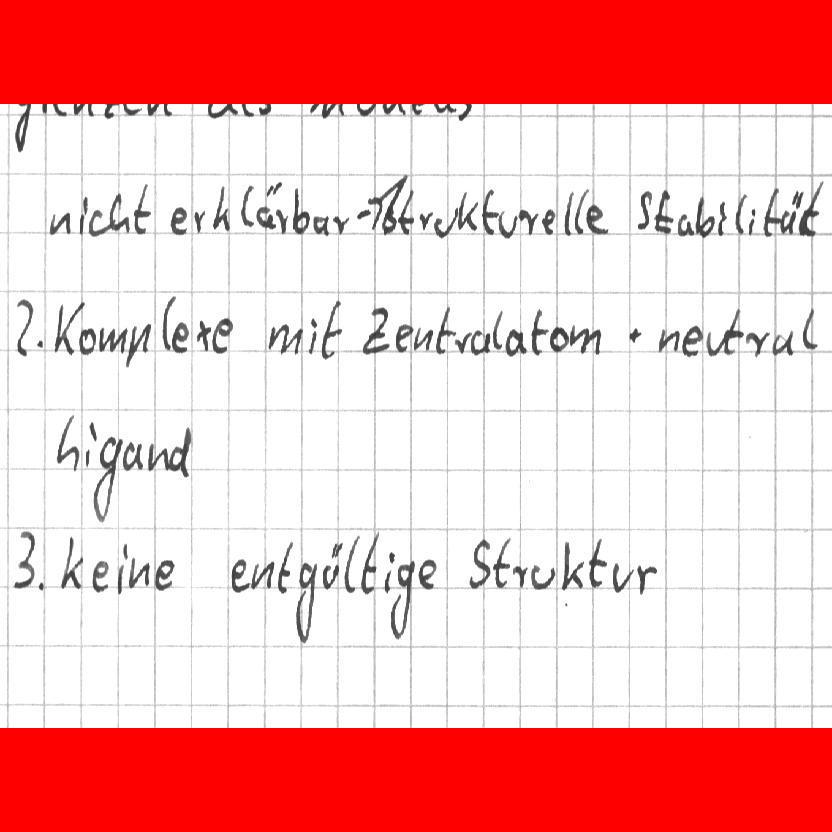 nicht erklärbar strukturelle Stabilität
2. Komplexe mit Zentralatom + neutral
Ligand
3. keine entgültige Struktur